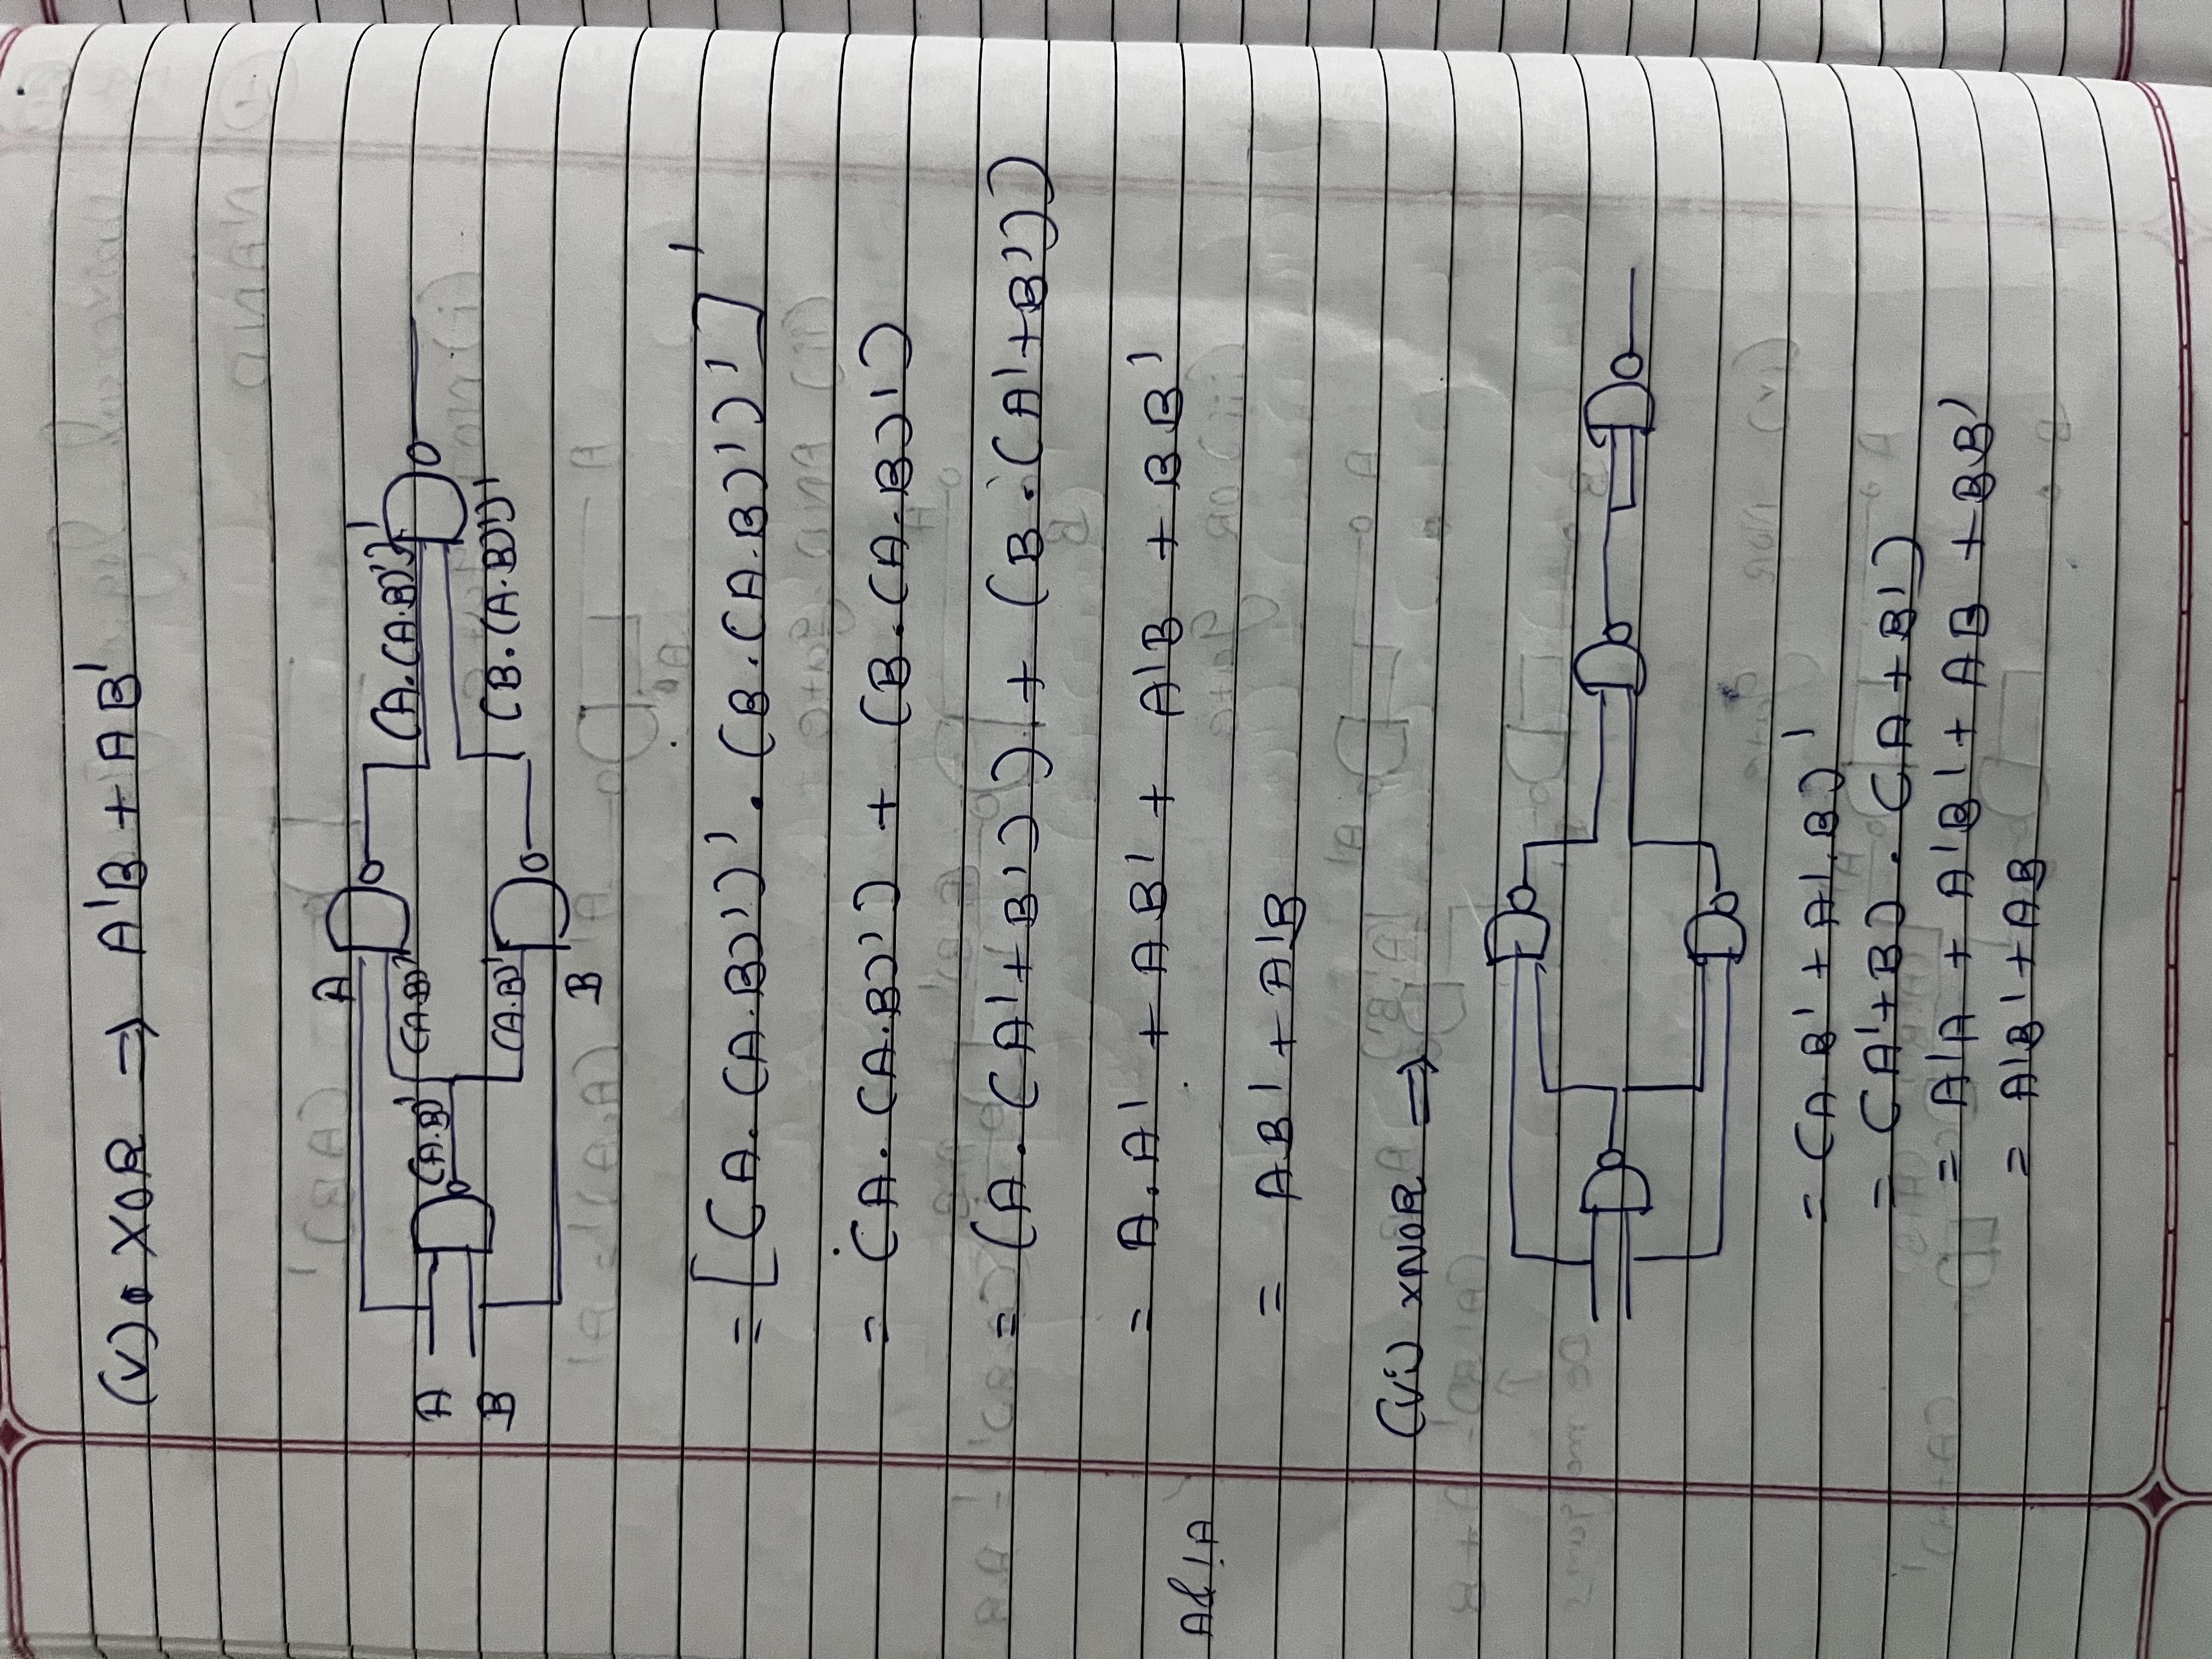 (V) XOR ⇒ A'B + AB'
A
(A.B)'
(A.B)'
(A.(A.B)')'
A
B
(A.B)'
(B.(A.B)')'
B
= [(A.(A.B)')' . (B.(A.B)')']'
= (A.(A.B)') + (B.(A.B)')
= (A.(A'+B')) + (B.(A'+B'))
= A.A' + AB' + A'B + BB'
= AB' + A'B
(Vi) XNOR ⇒
= (A.B' + A'.B)'
= (A'+B) . (A+B')
= A'A + A'B' + AB + BB'
= A'B' + AB